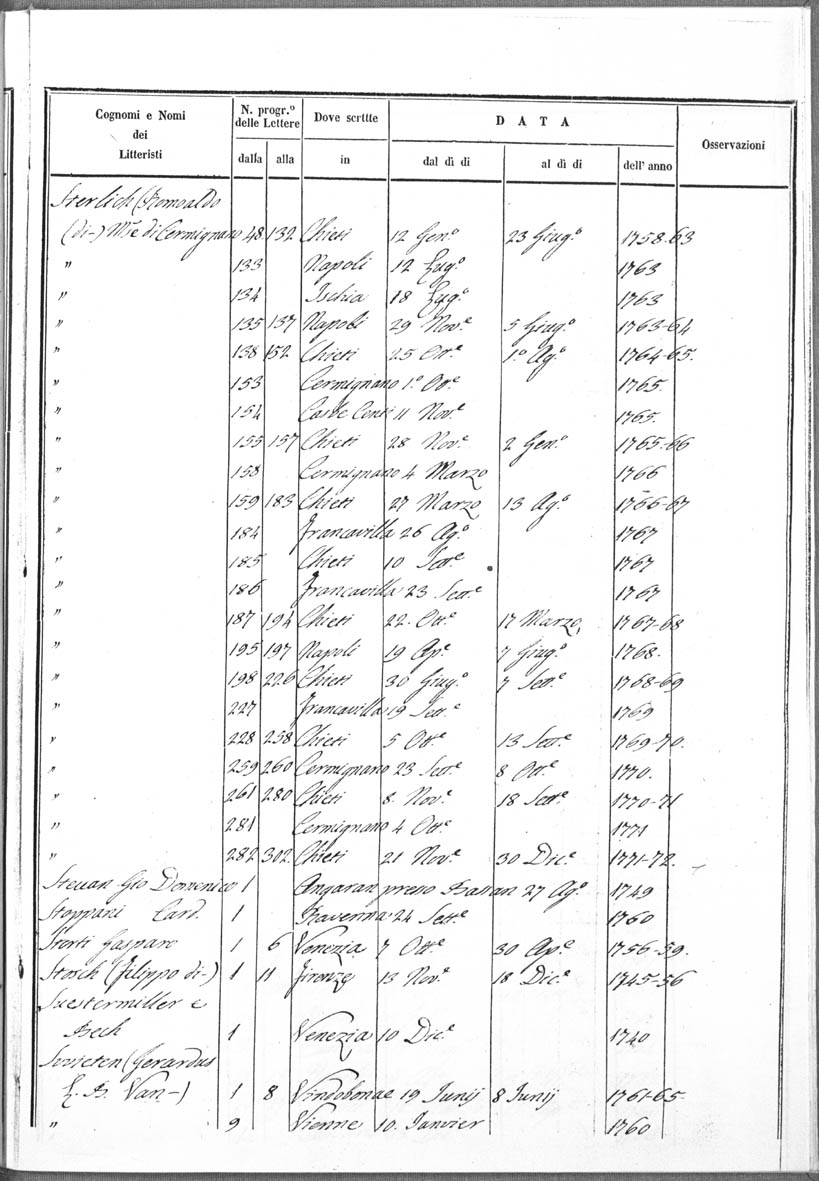 Cognomi e Nomi dei Litteristi N. progr.º delle Lettere Dove scritte DATA Osservazioni
dalla alla in dal dì di al dì di dell' anno
Sterlich (Romoaldo
(di-) Mse di Cermignano 48 132 Chieti 12 Gen.º 23 Giug.º 1758-63
" 133 Napoli 12 Lug.º 1763
" 134 Ischia 18 Lug.º 1763
" 135 137 Napoli 29 Nov.e 5 Giug.º 1763-64
" 138 152 Chieti 25 Ott.e 1.º Ag.º 1764-65.
" 153 Cermignano 1.º Ott.e 1765.
" 154 11 Nov.e 1765.
" 155 157 Chieti 28 Nov.e 2 Gen.º 1765-66
" 158 Cermignano 4 Marzo 1766
" 159 183 Chieti 27 Marzo 13 Ag.º 1766-67
" 184 Francavilla 26 Ag.º 1767
" 185 Chieti 10 Sett.e 1767
" 186 Francavilla 23 Sett.e 1767
" 187 194 Chieti 22. Ott.e 17 Marzo 1767-68
" 195 197 Napoli 19 Ap.e 7 Giug.º 1768.
" 198 226 Chieti 30 Giug.º 7 Sett.e 1768-69
" 227 Francavilla 19 Sett.e 1769
" 228 258 Chieti 5 Ott.e 13 Sett.e 1769-70.
" 259 260 Cermignano 23 Sett.e 8 Ott.e 1770.
" 261 280 Chieti 8. Nov.e 18 Sett.e 1770-71
" 281 Cermignano 4 Ott.e 1771
" 282 302. Chieti 21 Nov.e 30 Dic.e 1771-72.
Steuan Gio Domenico 1 Angaran presso Bassan 27 Ag.º 1749
Stoppani Card. 1 Ravenna 24 Sett.e 1760
Storti Gasparo 1 6 Venezia 7 Ott.e 30 Ap.e 1756-59.
Stosch (Filippo di-) 1 11 Firenze 13 Nov.e 18 Dic.e 1745-56
Suestermiller e
Bech 1 Venezia 10 Dic.e 1740
Swieten (Gerardus
L. B. Van-) 1 8 Vindobonae 19 Junij 8 Junij 1761-65.
" 9 Vienne 10. Janvier 1760